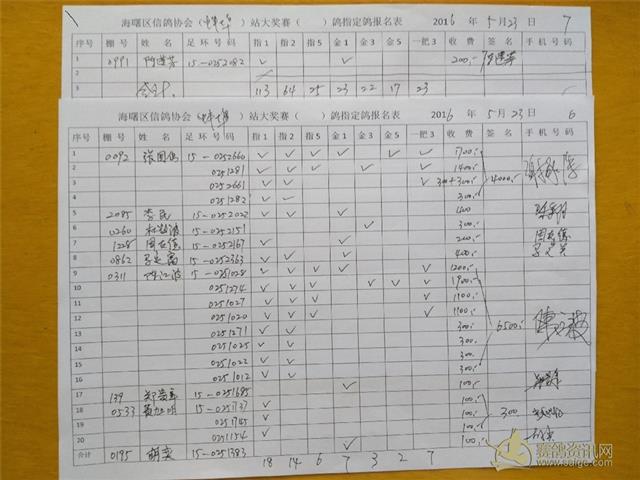 海曙区信鸽协会（蚌埠）站大奖赛（ ）鸽指定鸽报名表 2016 年 5月23日 7
序号 棚号 姓名 足环号码 指1 指3 指5 金1 金3 金5 一把3 收费 签名 手机号码
1 0991 15-0252082 ✓ ✓ 200
2
3 合计 113 64 25 23 22 17 23
海曙区信鸽协会（蚌埠）站大奖赛（ ）鸽指定鸽报名表 2016 年 5月23日 6
序号 棚号 姓名 足环号码 指1 指3 指5 金1 金3 金5 一把3 收费 签名 手机号码
1 0092 张国伟 15-0252660 ✓ ✓ ✓ ✓ ✓ ✓ 1700
2 0251281 ✓ ✓ ✓ ✓ ✓ 1400
3 0252661 ✓ ✓ ✓ 300+300 4000
4 0251282 ✓ ✓ 300
5 2085 李民 15-0252022 ✓ ✓ ✓ 400
6 0260 15-0252151 ✓ 300
7 1228 周在德 15-0252167 ✓ ✓ 200
8 0862 15-0252363 ✓ ✓ ✓ 400
9 0311 陈江波 15-0251028 ✓ ✓ ✓ ✓ ✓ 1200
10 0251274 ✓ ✓ ✓ ✓ ✓ ✓ 1900
11 0251027 ✓ ✓ ✓ ✓ 1100
12 0251020 ✓ ✓ ✓ ✓ 1100 6500
13 0251271 ✓ ✓ 300
14 0251025 ✓ ✓ 300
15 0251022 ✓ ✓ 300
16 0251012 ✓ ✓ 300
17 139 15-0251685 ✓ 100
18 0533 15-0251737 ✓ 100 300
19 0251745 ✓ 100
20 0251154 ✓ 100
合计 0195 胡奕 15-0251383 ✓ 100
18 14 6 7 3 2 7
赛鸽资讯网
www.saige.com